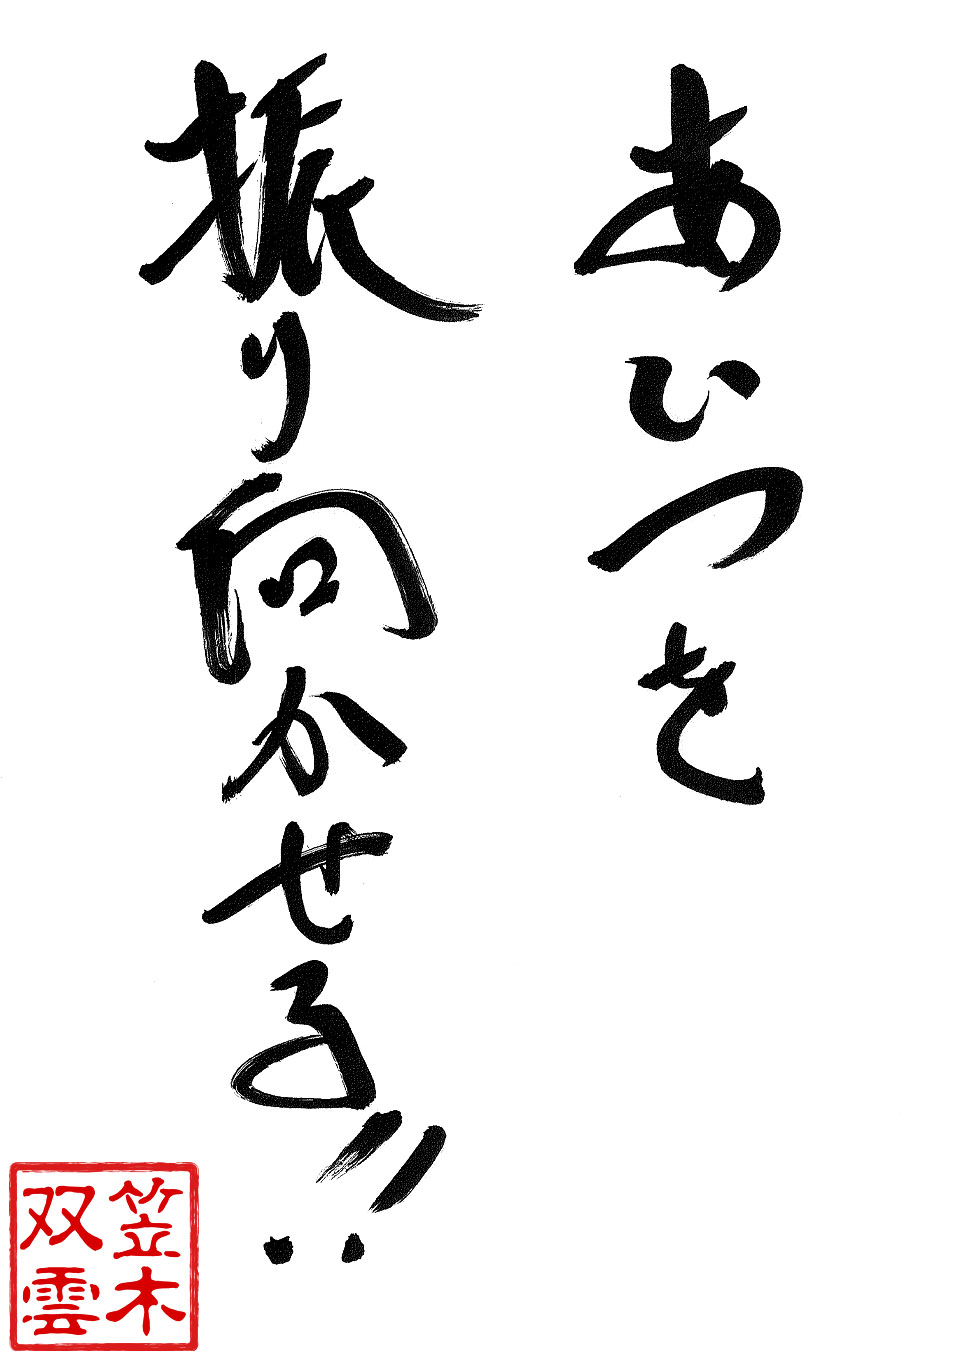 あいつを
振り向かせる!!
笠木
双雲